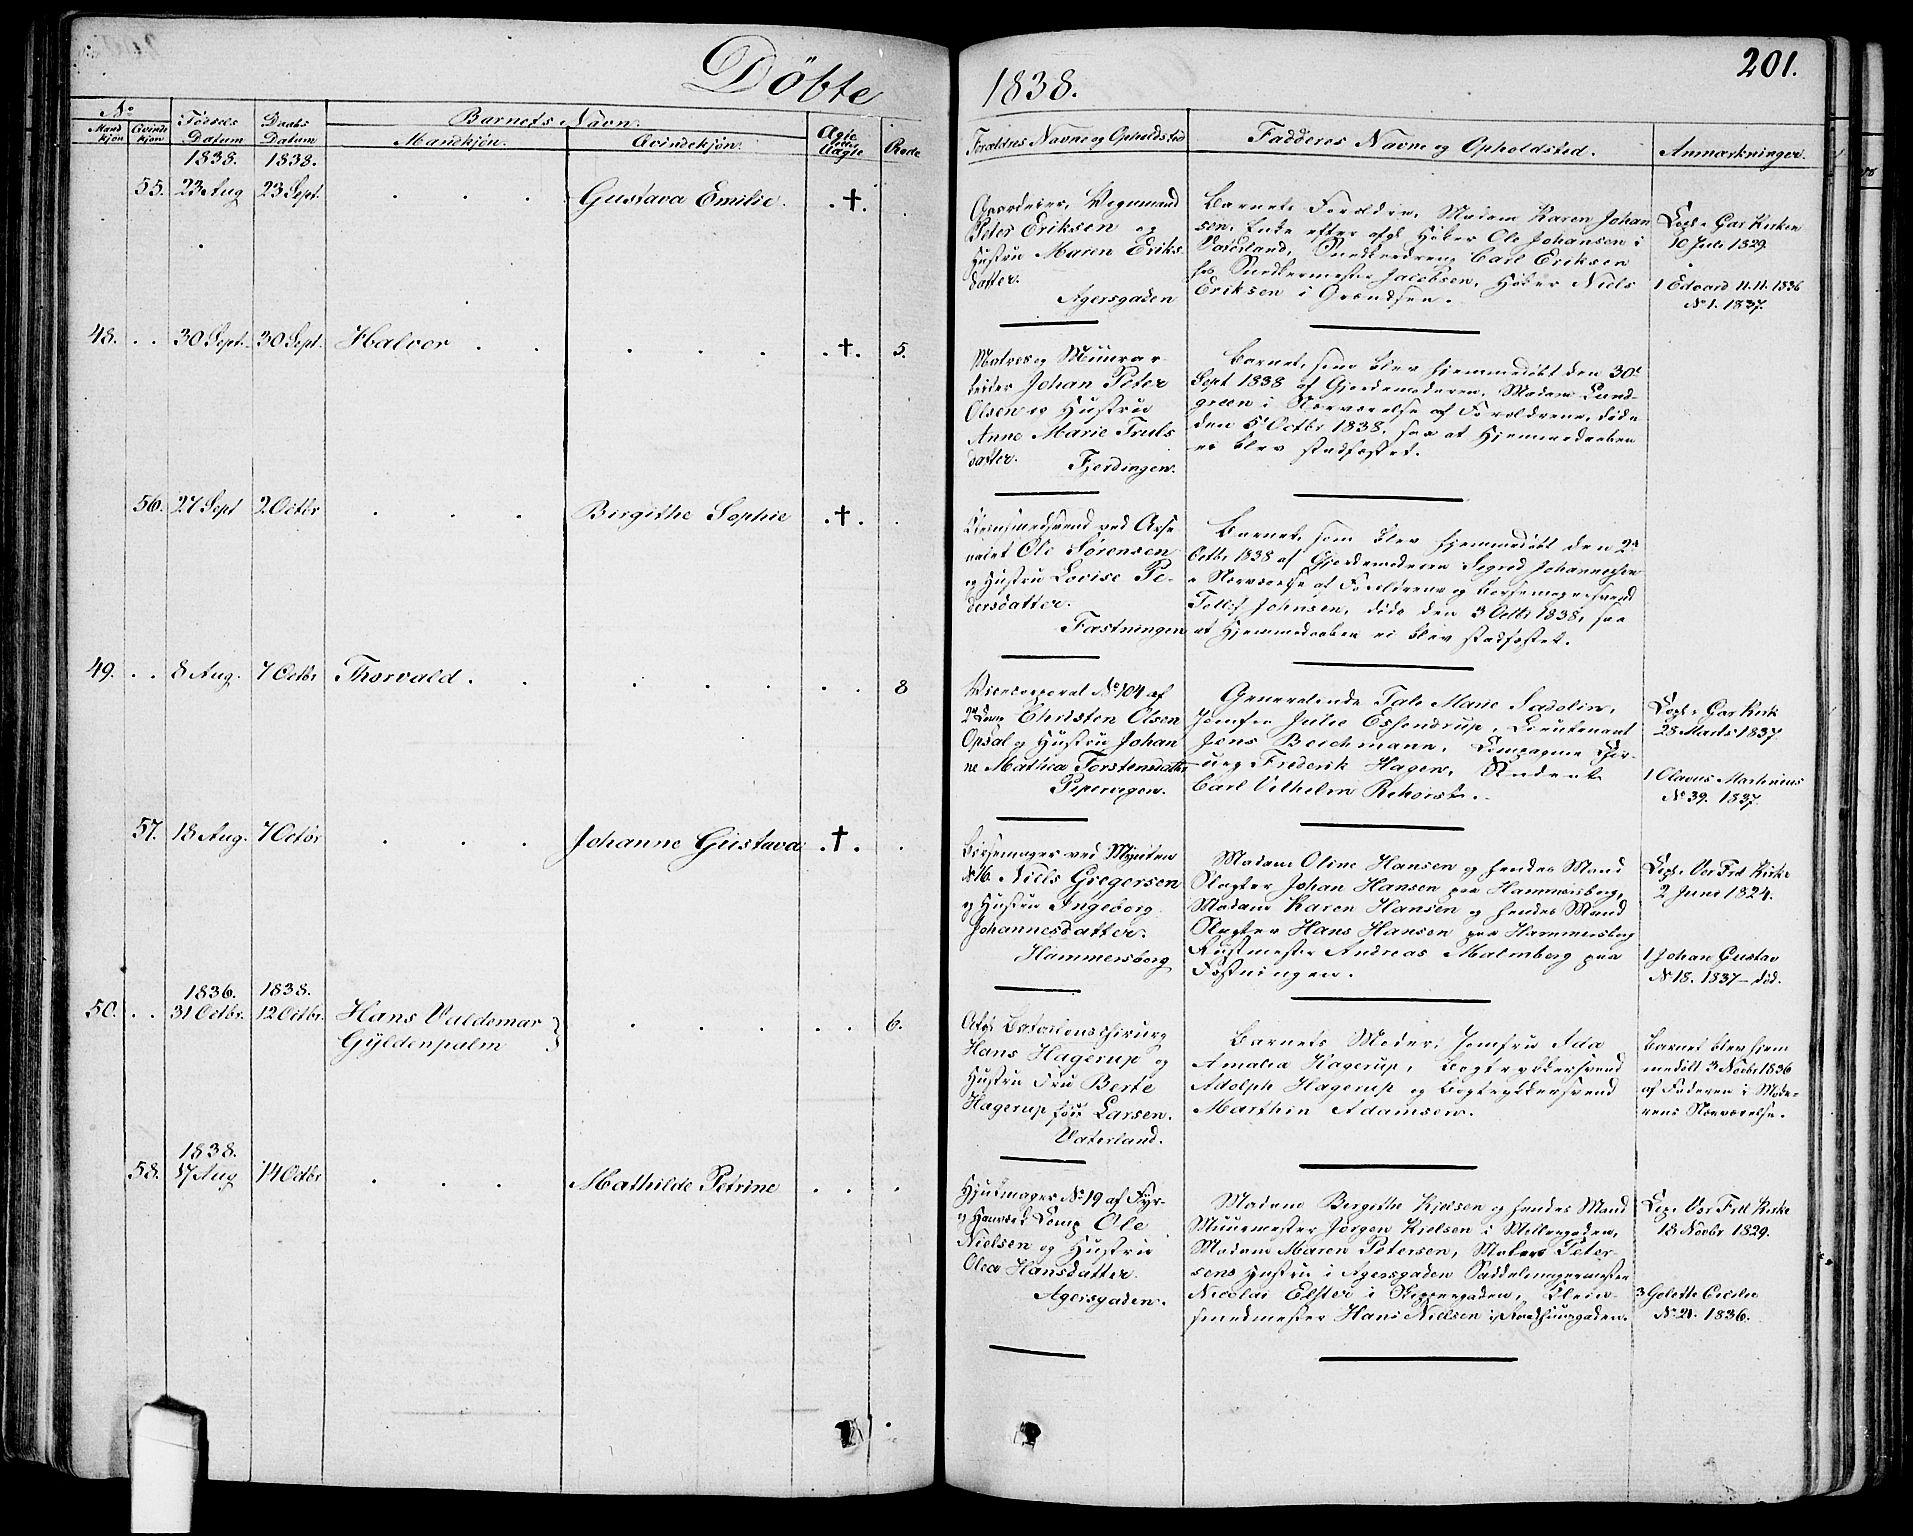 Døbte
1838.
201.
No
Mand
kjøn
Qvinde
kjøn
Fødsels
Datum
Daabs
Datum
Barnets Navn.
Mandkjøn.
Qvindekjøn.
Ægte
eller
Uægte
Rode
Forældres Navne og Opholdsted
Fadderes Navne og Opholdsted.
Anmærkninger.
1838. 1838.
55. 23 Aug 23 Sept. Gustava Emilie. †.
Peter Eriksen og
Hustru Maren Eriks
datter.
Agersgaden
Barnets Forældre, Madam Karen Johan
sen, Enke efter afg. Høker Ole Johansen i
Vaterland, Snedkerdreng Carl Eriksen
hos Snedkermester Jacobsen, Høker Niels
Eriksen i Grændsen.
Cop. i Gar Kirken
10 Juli 1829.
1 Edvard 11.11.1836
No 1. 1837.
48. 30 Sept. 30 Sept. Halvor †. 5.
beider Johan Peter
Olsen og Hustru
Anne Marie Truls
datter.
Fjerdingen.
Barnet, som blev hjemmedøbt den 30t
Sept 1838 af Gjordemoderen, Madam Lund-
green i Nærværelse af Forældrene, døde
den 5 Octbr 1838, saa at Hjemmedaaben
ei blev stadfæstet.
56. 27 Sept 2 Octbr Birgithe Sophie †.
nalet Ole Sørensen
og Hustru Lovise Pe-
dersdatter.
Fæstningen
Barnet, som blev hjemmedøbt den 2d
Octbr 1838 af Gjordemoderen Sigrid Johannesen
i Nærværelse af Forældrene og Børsemagersvend
Tollef Johnsen, døde den 3 Octbr 1838, saa
at Hjemmedaaben ei blev stadfæstet.
49. 8 Aug. 7 Octbr Thorvald. 8
Vicecorporal No 104 af
2d Comp Christen Olsen
Opsal og Hustru Johan
ne Mathea Torstensdatter
Pipervigen.
Generalinde Tale Marie Sadolin,
Jomfru Julie Essendrup, Lieutenant
Jens Beichmann, Compagnie Chir-
urg Frederik Hagen, Student
Carl Vilhelm Rehorst.
Copl. i Gar Kirk
28 Marts 1837
1 Olavus Marthinius
No 39. 1837.
57. 18 Aug. 7 Octbr Johanne Gustava †.
Børsemager ved Mynten
No 16. Niels Gregersen
og Hustru Ingeborg
Johannesdatter.
Hammersborg
Madam Oline Hansen og hendes Mand
Slagter Johan Hansen paa Hammersborg,
Madam Karen Hansen og hendes Mand
Slagter Hans Hansen paa Hammersborg
Rustmester Andreas Malmberg paa
Fæstningen.
Cop. i Vor Frl Kirke
2 Juni 1824.
1 Johan Gustav
No 18. 1837 – død.
1836. 1838.
50. 31 Octbr. 12 Octbr. Hans Valdemar
Gyldenpalm 6.
Afg: Batailonschirurg
Hans Hagerup og
Hustru Fru Berte
Hagerup født Larsen.
Vaterland.
Barnets Moder, Jomfru Ada
Amalia Hagerup, Bogtrykkersvend
Adolph Hagerup og Bogtrykkersvend
Marthin Adamsen.
Barnet blev hjem
medøbt 3 Novbr 1836
af Faderen i Mode-
rens Nærværelse.
1838.
58. 17 Aug 14 Octbr Mathilde Petrine
Hjulmager No 19 af Fyr-
Ole
Nielsen og Hustru
Olea Hansdatter.
Agersgaden.
Madam Bergithe Kjelsen og hendes Mand
Muurmester Jørgen Kielsen i Møllergaden,
Madam Maren Petersen, Maler Peter-
sens Hustru i Agersgaden Saddelmagermester
Nicolai Elster i Skippergaden, Klein-
smedmester Hans Nielsen i Raadhuusgaden.
Cop. i Vor Frl Kirke
18 Novbr 1829.
3 Golette Cecilie
No 21. 1836.